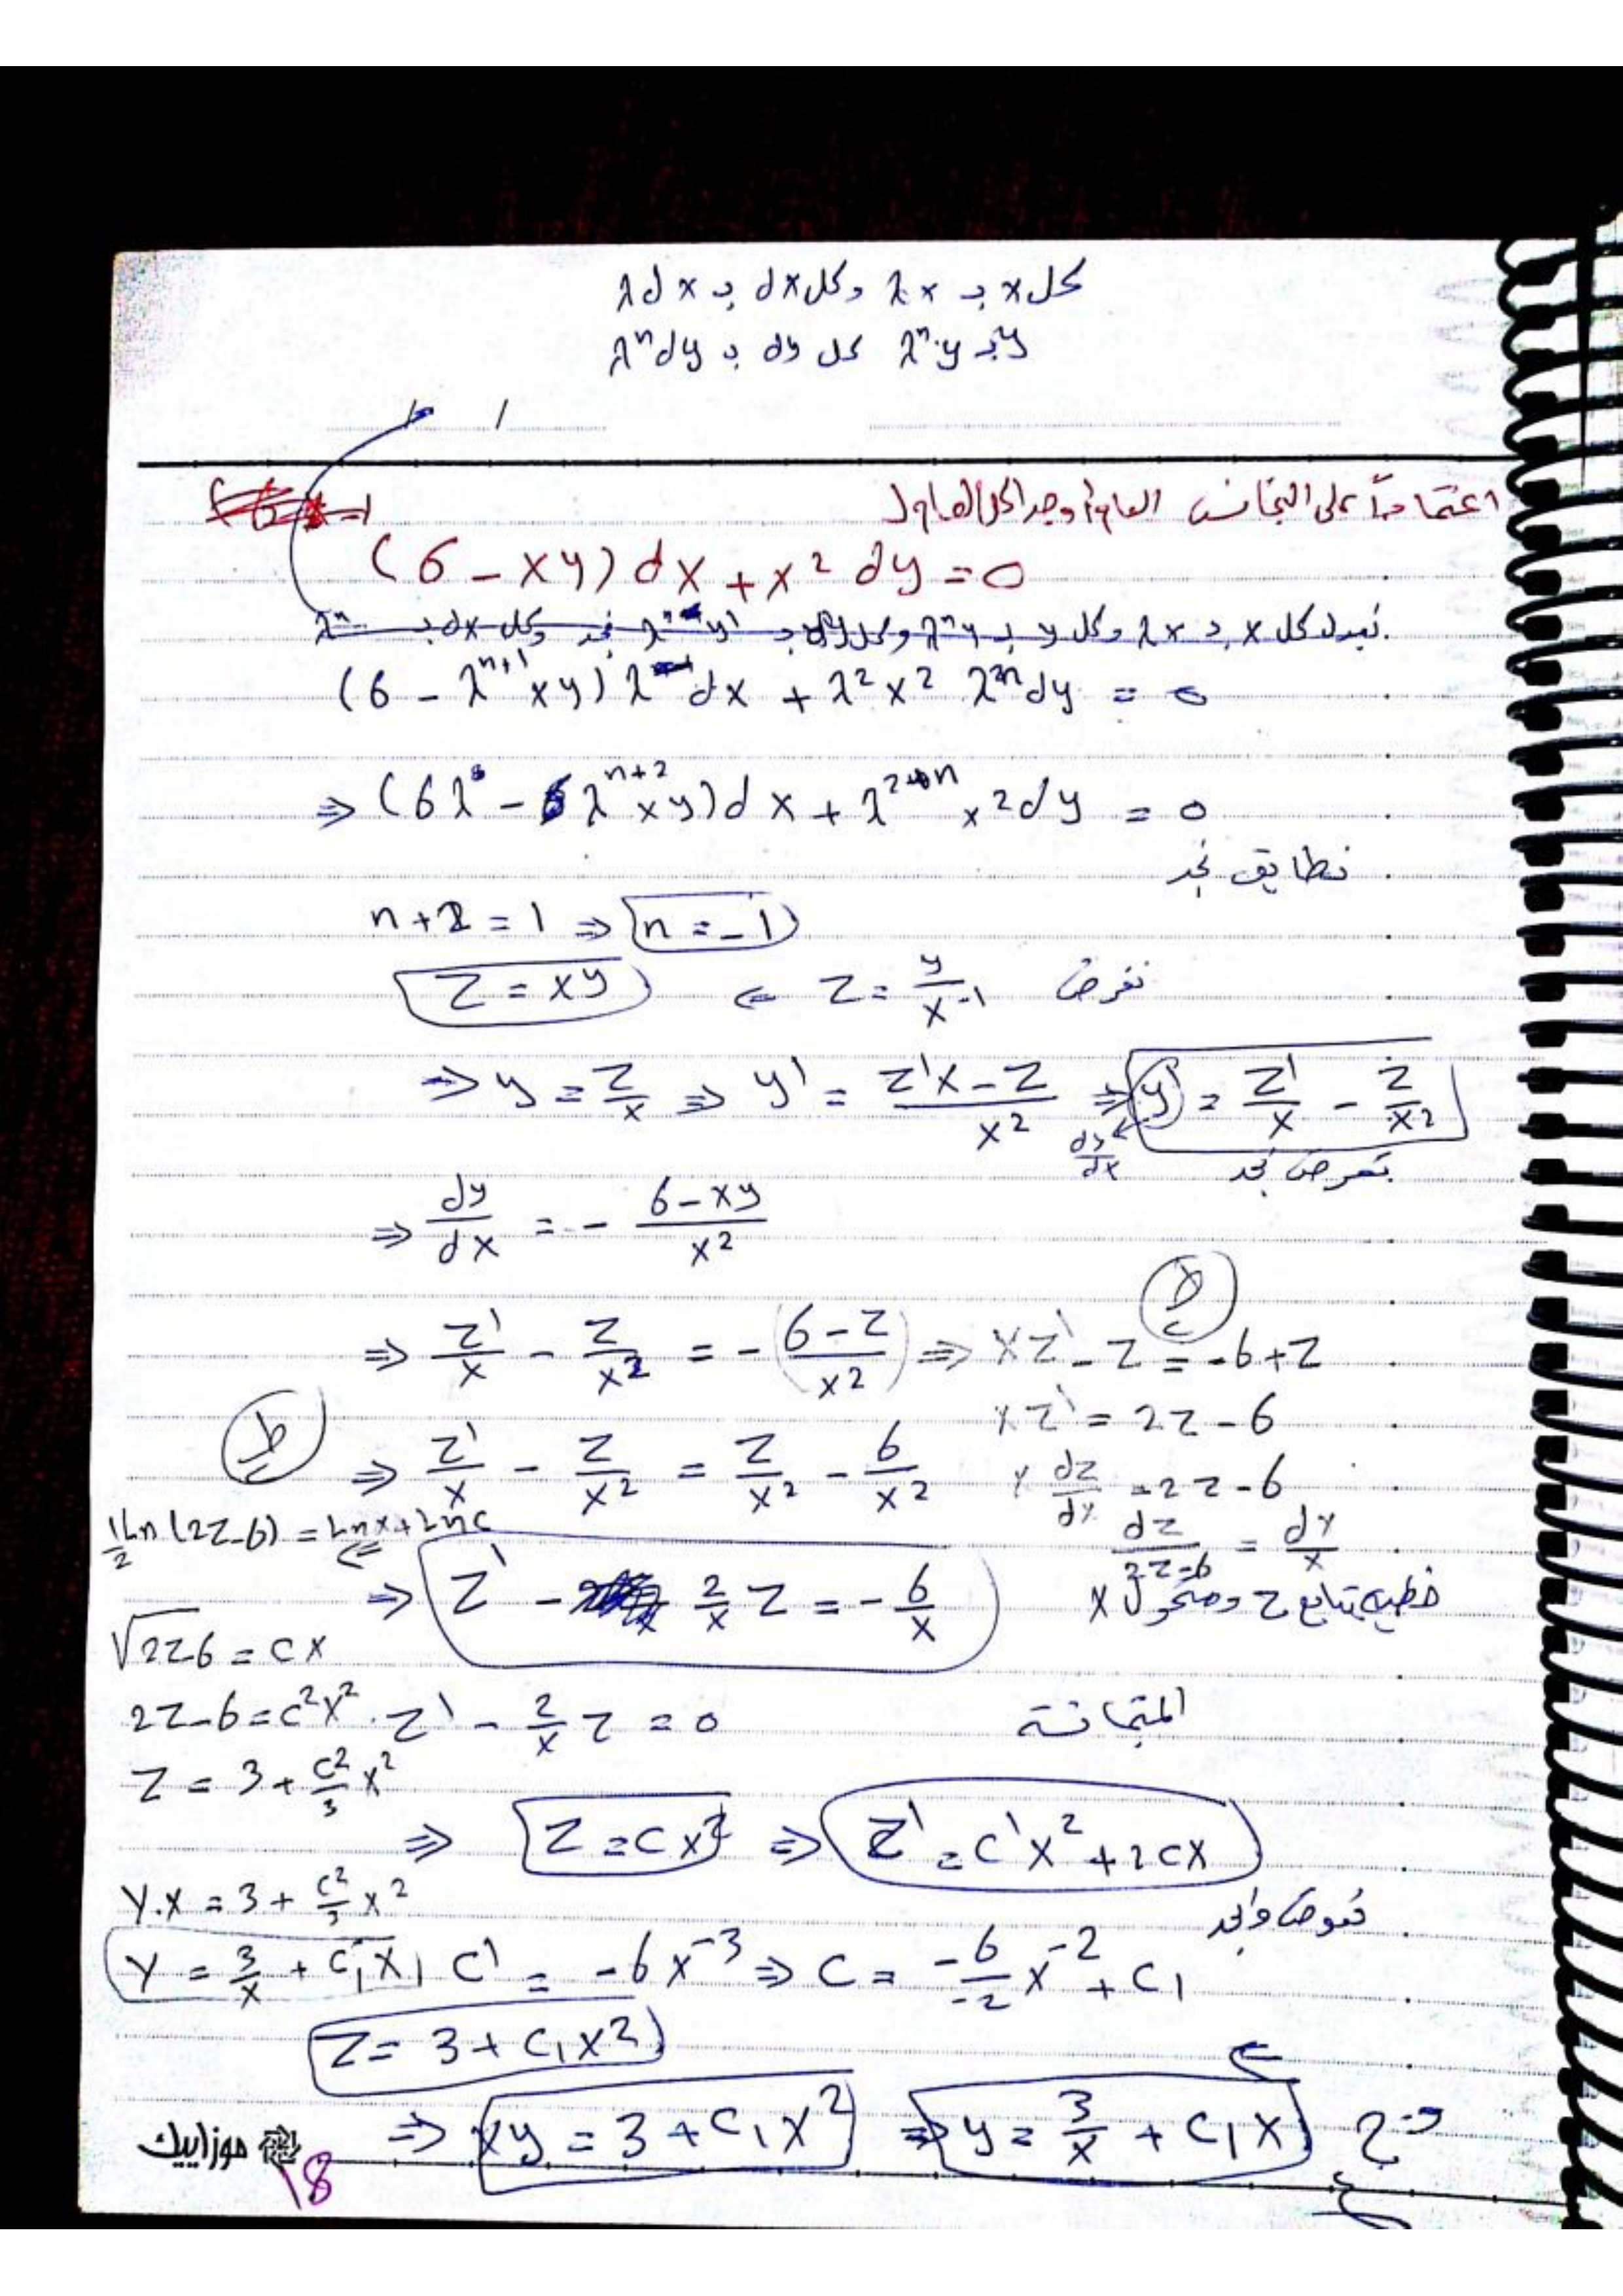 كل x بـ λx وكل dx بـ λdx
y بـ λⁿ·y كل dy بـ λⁿdy
/ /
اعتماداً على التجانس العام أوجد الحل العام لـ
(6 - xy) dx + x² dy = 0
نبدل كل x بـ λx وكل y بـ λⁿy وكل نجد وكل dx بـ
(6 - λⁿ⁺¹xy) λ dx + λ²x² λⁿdy = 0
⇒ (6λ - λⁿ⁺²xy)dx + λ²⁺ⁿ x²dy = 0
نطابق نجد
n+2 = 1 ⇒ n = -1
نفرض z = y/x⁻¹ ⇐ z = xy
⇒ y = z/x ⇒ y' = (z'x - z)/x² ⇒ y' = z'/x - z/x²
dy/dx
نعوض نجد
⇒ dy/dx = - (6-xy)/x²
⇒ z'/x - z/x² = -(6-z/x²) ⇒ xz' - z = -6+z
xz' = 2z-6
⇒ z'/x - z/x² = z/x² - 6/x²
x dz/dx = 2z-6
dz/2z-6 = dx/x
½Ln(2z-6) = Lnx + Lnc
⇒ z' - 2/x z = -6/x
خطية بتابع z ومتحول x
√2z-6 = cx
2z-6 = c²x²
z' - 2/x z = 0
المتجانسة
z = 3 + c²/3 x²
⇒ z = cx² ⇒ z' = c'x² + 2cx
y.x = 3 + c²/3 x²
نعوض نجد
y = 3/x + c₁x
c' = -6x⁻³ ⇒ c = -6/-2 x⁻² + c₁
z = 3 + c₁x²
⇒ xy = 3 + c₁x² ⇒ y = 3/x + c₁x
موزاييك
18